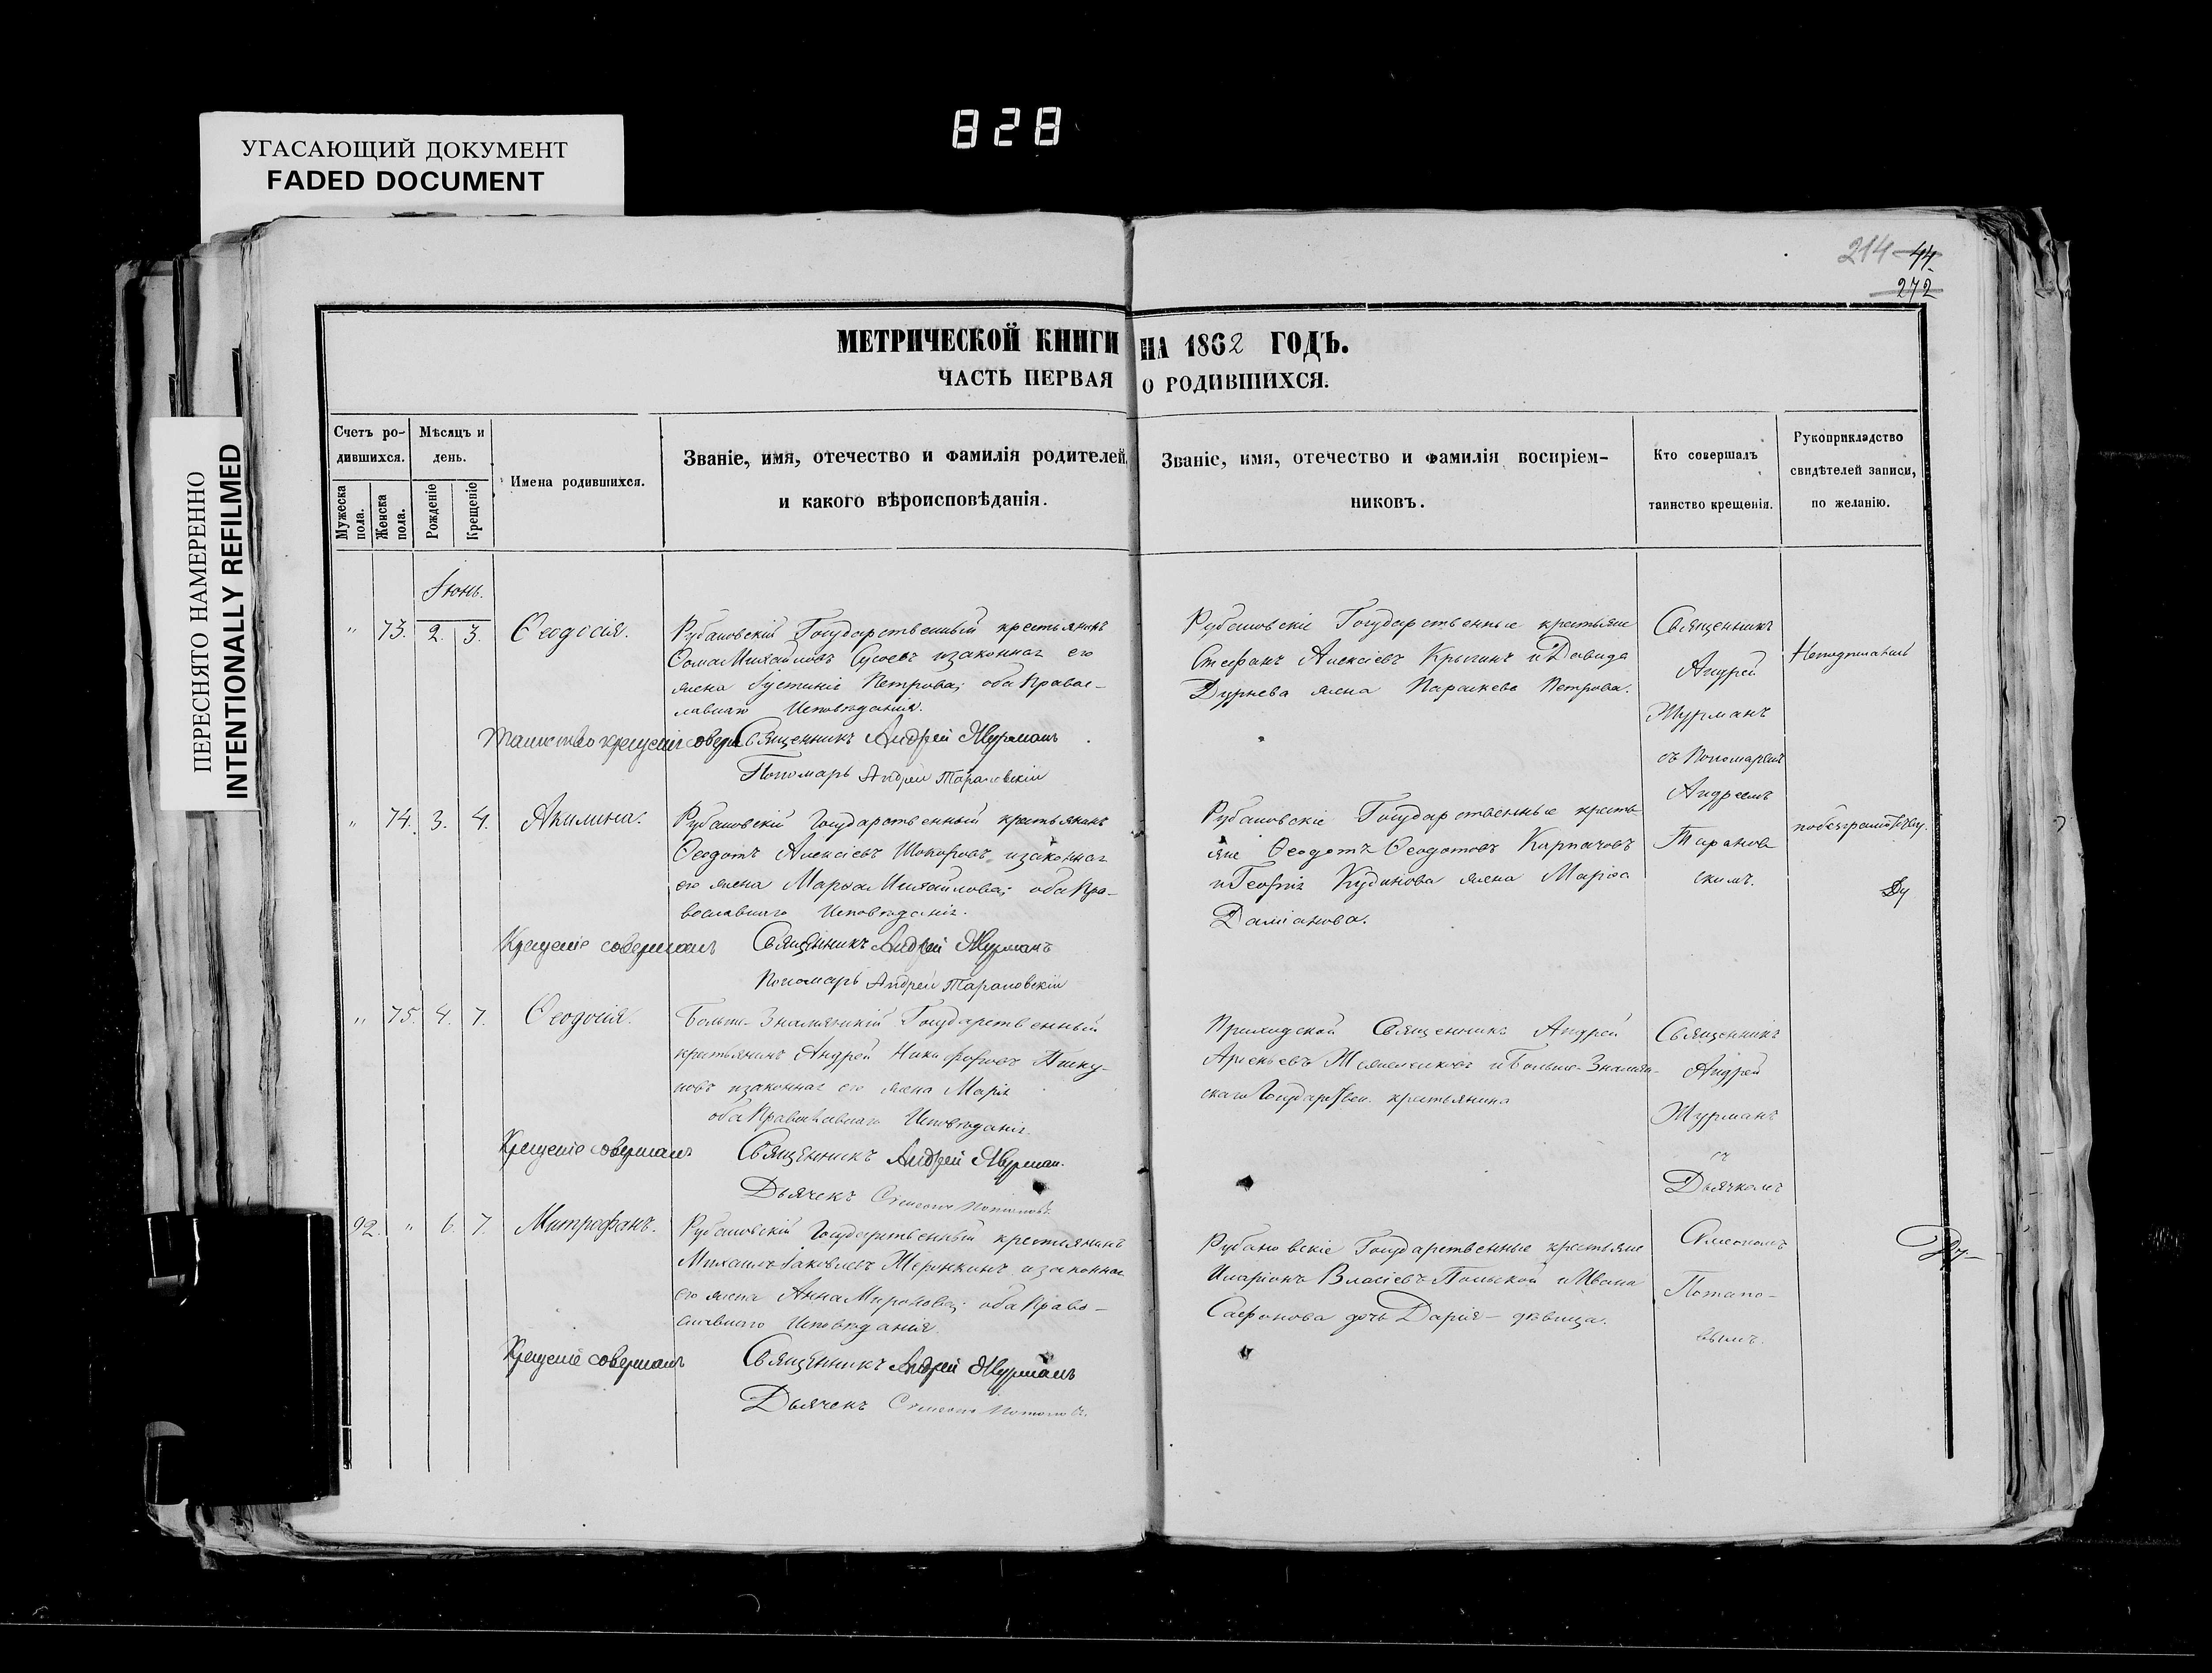 828
УГАСАЮЩИЙ ДОКУМЕНТ
FADED DOCUMENT
ПЕРЕСНЯТО НАМЕРЕННО
INTENTIONALLY REFILMED
214 44.
272
МЕТРИЧЕСКОЙ КНИГИ НА 1862 ГОДЪ.
ЧАСТЬ ПЕРВАЯ О РОДИВШИХСЯ.
Счетъ ро-
дившихся.
Мужеска пола.
Женска пола.
Мѣсяцъ и
день.
Рожденіе
Крещеніе
Имена родившихся.
Званіе, имя, отечество и фамилія родителей,
и какого вѣроисповѣданія.
Званіе, имя, отечество и фамилія воспріем-
никовъ.
Кто совершалъ
таинство крещенія.
Рукоприкладство
свидѣтелей записи,
по желанію.
Іюнь.
" 73. 2. 3. Ѳеодосія.
Рубановскій Государственный крестьянинъ
Ѳома Михайловъ изаконная его
жена Іустинія Петрова; оба Правос-
лавнаго Исповѣданія.
Таинство крещенія совер Священникъ Андрей Журманъ
Пономарь Андрей Тарановскій
Рубановскіе Государственные крестьяне
Стефанъ Алексіевъ Крыгинъ и Давида
Дурнева жена Параскева Петрова.
" 74. 3. 4. Акилина.
Рубановскій Государственный крестьянинъ
Ѳеодотъ Алексіевъ изаконная
его жена Марѳа Михайлова; оба Пра-
вославнаго Исповѣданія.
Крещеніе совершалъ Священникъ Андрей Журманъ
Пономарь Андрей Тарановскій
Рубановскіе Государственные кресть-
яне Ѳеодотъ Ѳеодотовъ Карпачовъ
и Георгія Кудинова жена Марѳа
Даміанова.
Священникъ
Андрей
Журманъ
съ Пономаремъ
Андреемъ
Таранов
скимъ.
" 75. 4. 7. Ѳеодосія.
Больше-Знамянскій Государственный
крестьянинъ Андрей Никифоровъ Пику-
новъ изаконная его жена Марія
оба Православнаго Исповѣданія.
Крещеніе совершалъ Священникъ Андрей Журман.
Дьячекъ Симеонъ Потаповъ.
Приходской Священникъ Андрей
и Больше-Знамян-
скаго Государствен. крестьянина
92. " 6. 7. Митрофанъ.
Рубановскій Государственный крестьянинъ
Михаилъ Іаковлевъ изаконная
его жена Анна Миронова; оба Право-
славнаго Исповѣданія.
Крещеніе совершалъ Священникъ Андрей Журманъ
Дьячекъ Симеонъ Потаповъ.
Рубановскіе Государственные крестьяне
Иларіонъ Власіевъ Польской и Ивана
Сафонова дочь Дарія - дѣвица.
Священникъ
Андрей
Журманъ
съ
Дьячкомъ
Симеономъ
Потапо-
вымъ.